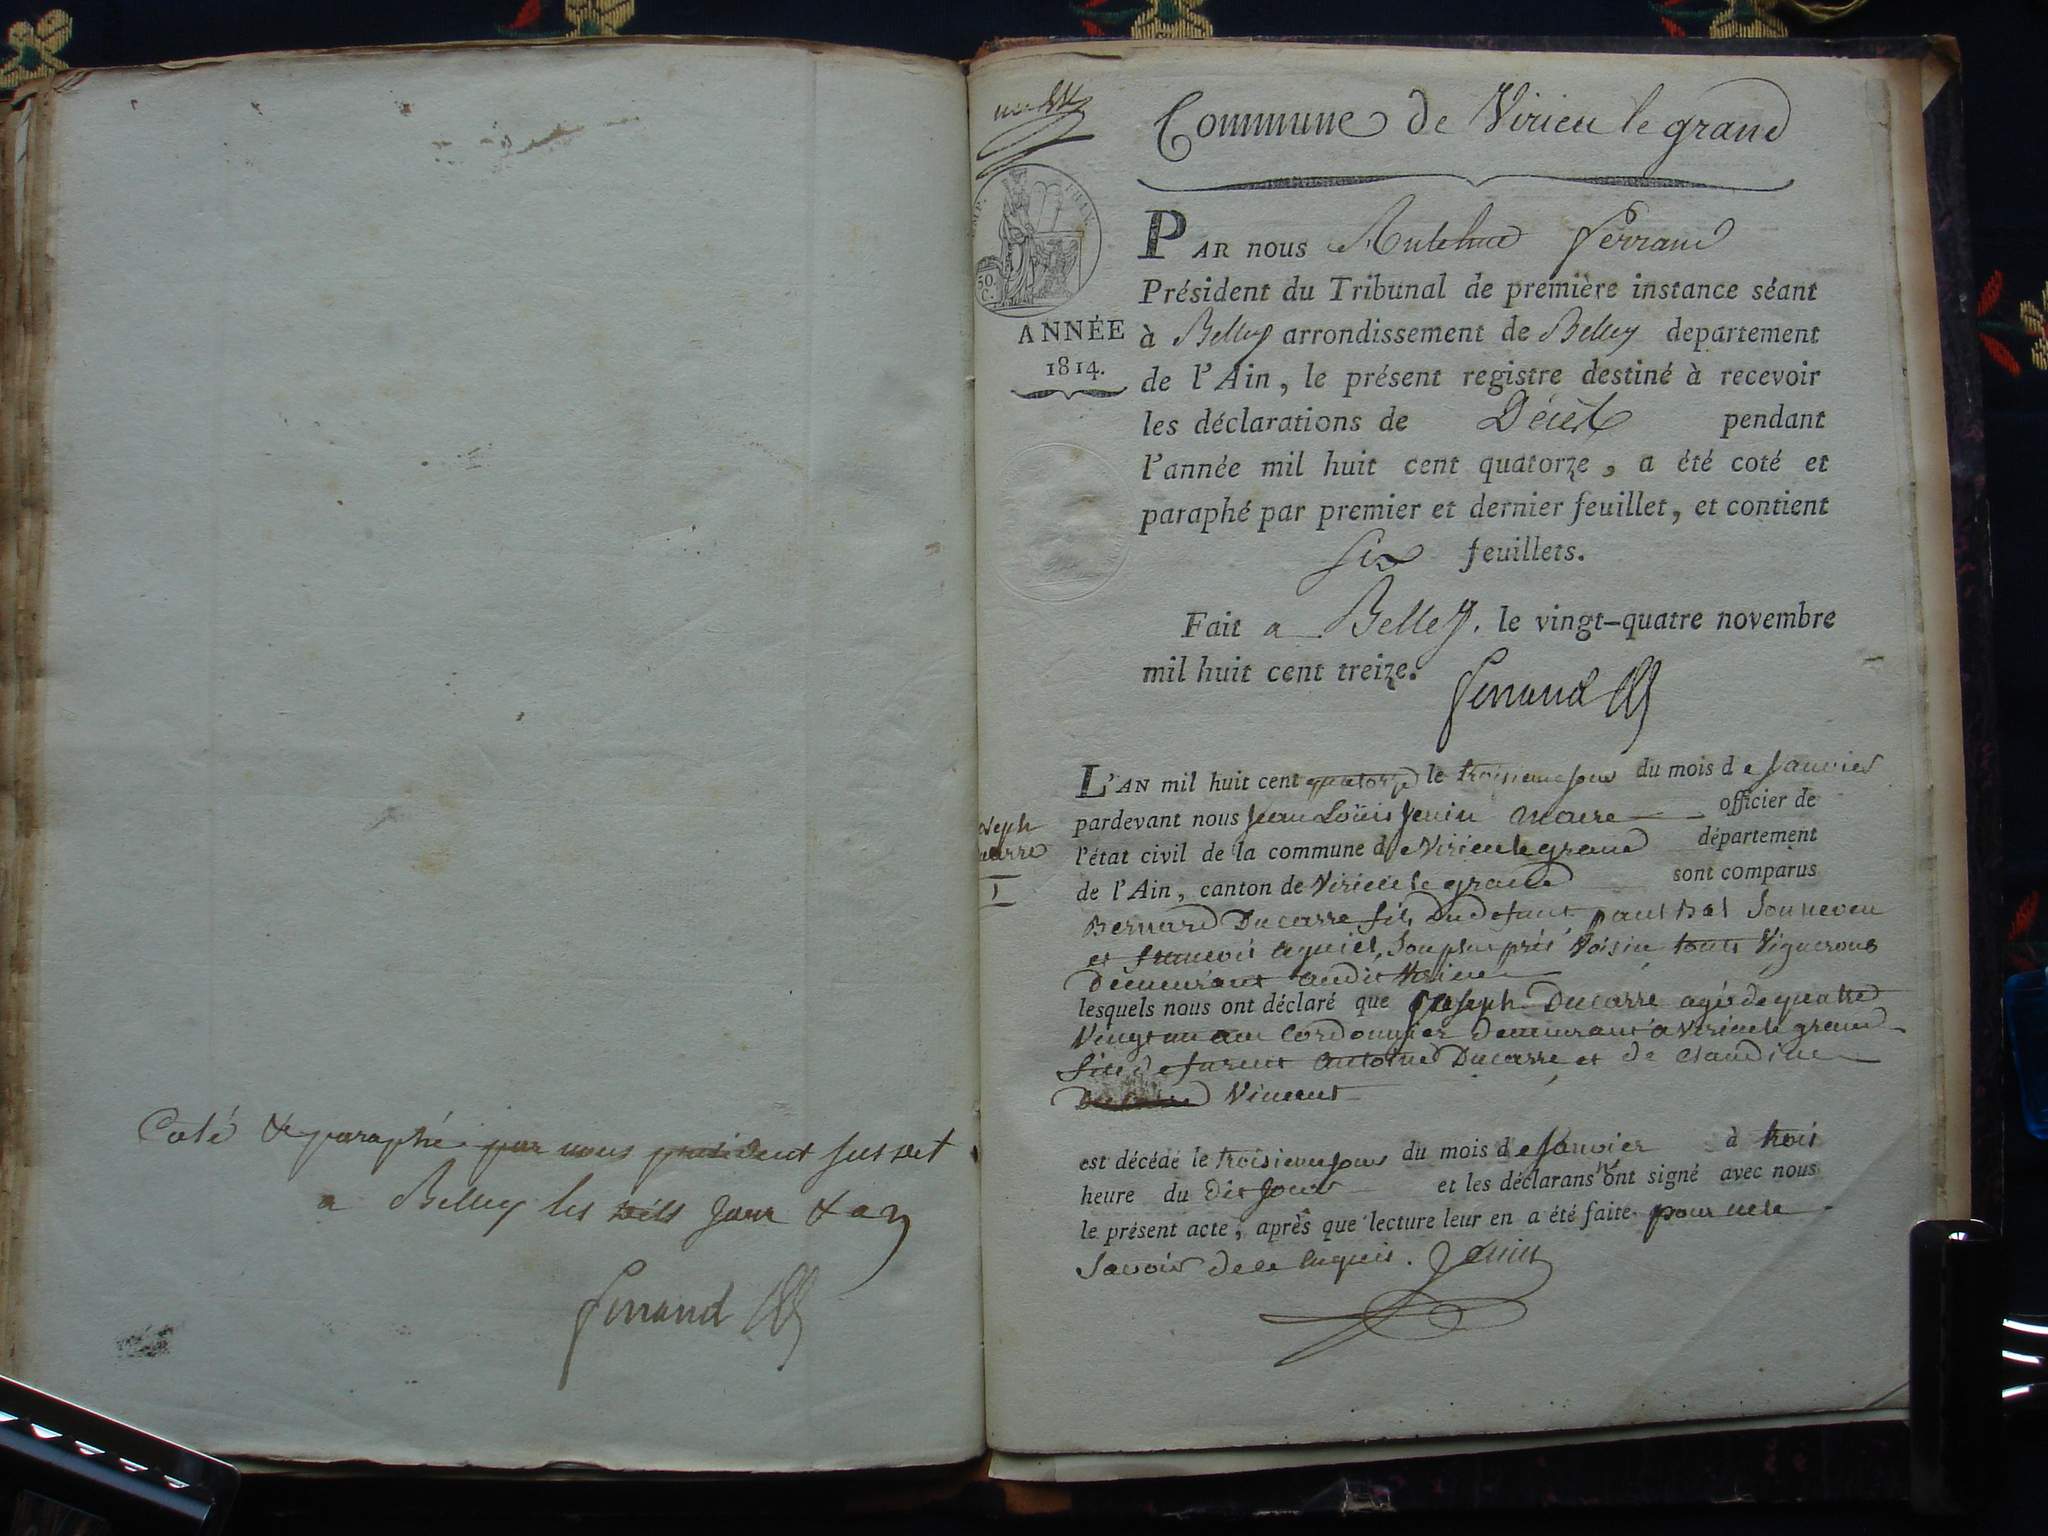 Coté & paraphé par nous président susdit
a Belley les dits jour & an
Ferrand
Commune de Virieu le grand
EMP. FRAN.
50.
C.
ANNÉE
1814.
PAR nous Anthelme Ferrand
Président du Tribunal de première instance séant
à Belley arrondissement de Belley departement
de l'Ain, le présent registre destiné à recevoir
les déclarations de Décès pendant
l'année mil huit cent quatorze, a été coté et
paraphé par premier et dernier feuillet, et contient
six feuillets.
Fait a Belley, le vingt-quatre novembre
mil huit cent treize.
Ferrand
oseph
ucarre
1
L'AN mil huit cent quatorze le troisieme jour du mois de Janvier
pardevant nous Jean Loüis Jenin maire officier de
l'état civil de la commune de Virieu le grand département
de l'Ain, canton de Virieu le grand sont comparus
Bernard Ducarre fils du defunt paul son neveu
et francois son plus près voisin touts Vignerons
Demeurant audit Virieu
lesquels nous ont déclaré que Joseph Ducarre agé de quatre
Vingt un ans Cordonnier demeurant a Virieu le grand
fils de furent antoine Ducarre et de Claudine
Vincent
est décédé le troisieme jour du mois de Janvier à trois
heure du dit jour et les déclarans n'ont signé avec nous
le présent acte, après que lecture leur en a été faite pour ne le
Savoir de ce Enquis. Jenin